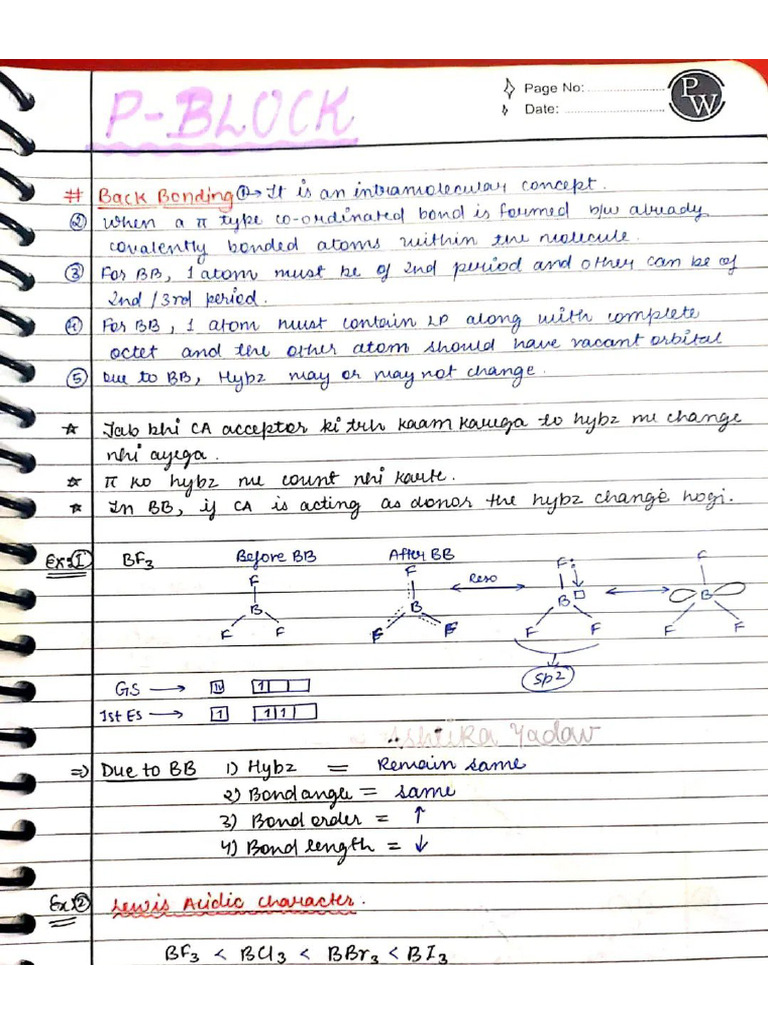 P-BLOCK
Page No:
Date:
PW
# Back Bonding ①→ It is an intramolecular concept.
② When a π type co-ordinated bond is formed b/w already
covalently bonded atoms within the molecule.
③ For BB, 1 atom must be of 2nd period and other can be of
2nd/3rd period.
④ For BB, 1 atom must contain LP along with complete
octet and the other atom should have vacant orbital
⑤ Due to BB, Hybz may or may not change.
☆ Jab bhi CA acceptor ki trh kaam karega to hybz me change
nhi ayega.
☆ π ko hybz me count nhi karte.
☆ In BB, if CA is acting as donor the hybz change hogi.
Ex:① BF3 Before BB After BB
F B F F
F B F F
Reso
F: B F F
F B F F
sp2
GS → 1L 1
1st ES → 1 1 1
Yadav
⇒ Due to BB 1) Hybz = Remain same
2) Bond ange = same
3) Bond order = ↑
4) Bond length = ↓
Ex:② Lewis Acidic character.
BF3 < BCl3 < BBr3 < BI3